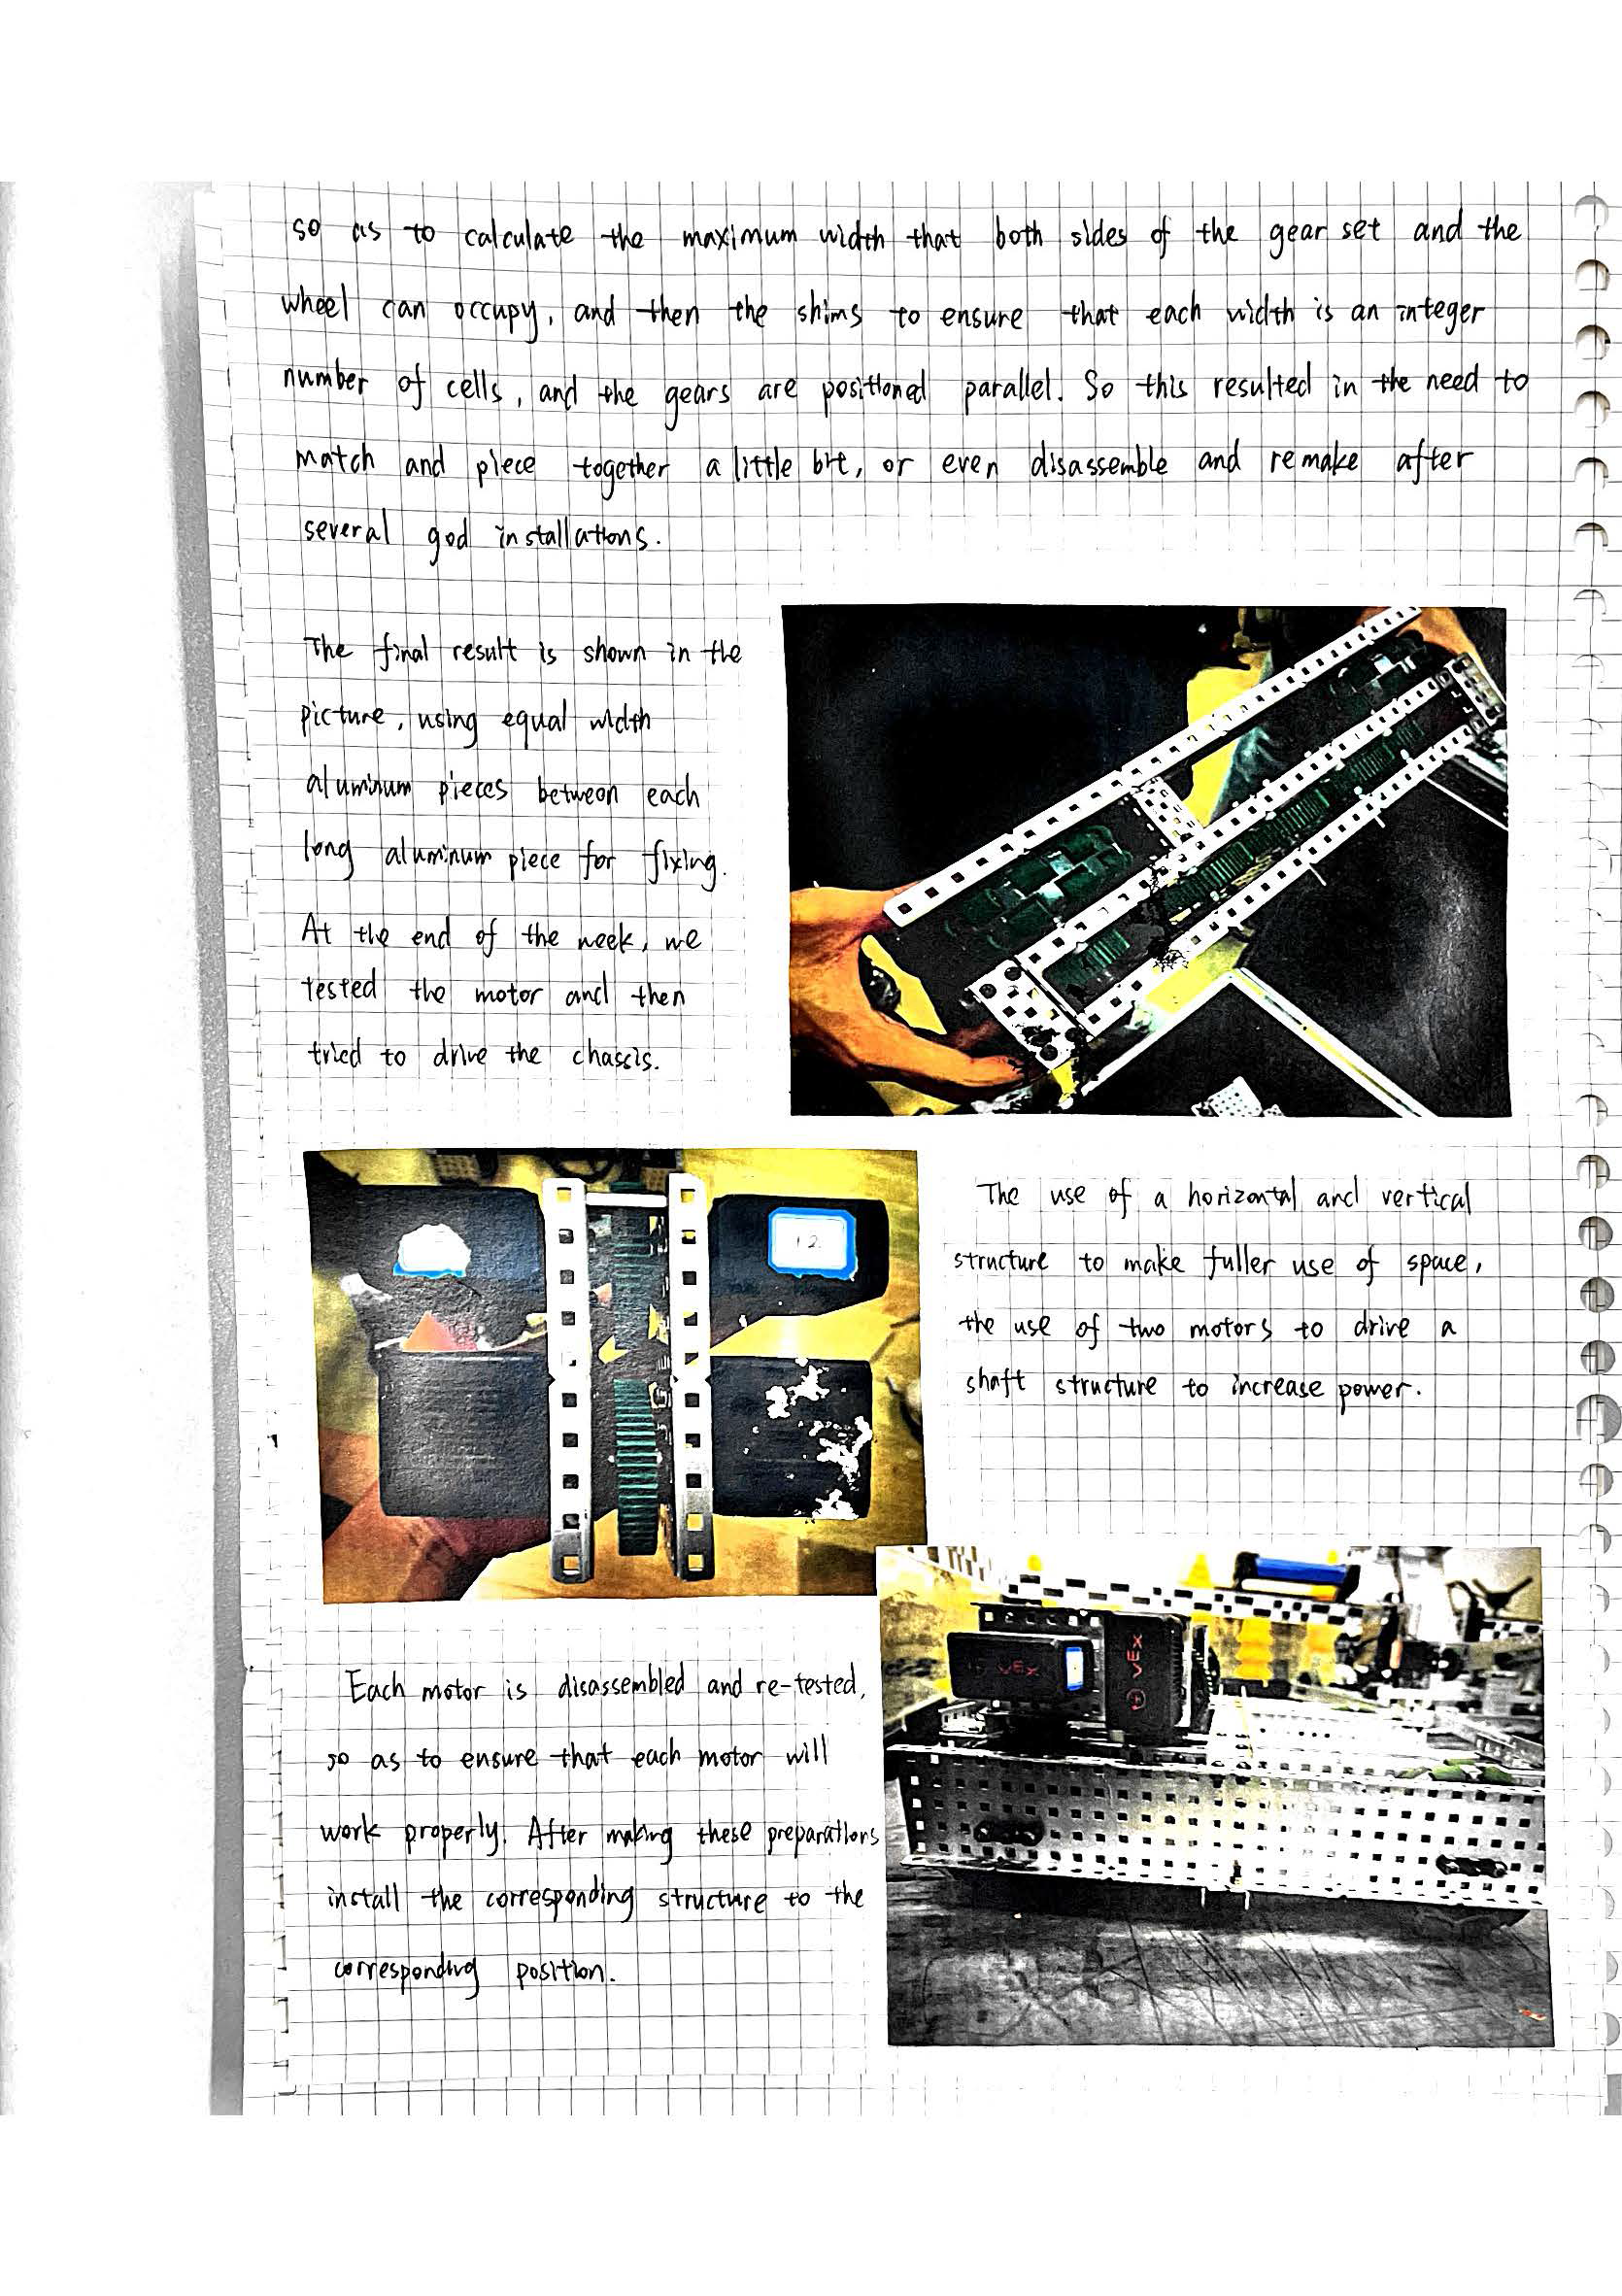 so as to calculate the maximum width that both sides of the gear set and the
wheel can occupy, and then the shims to ensure that each width is an integer
number of cells, and the gears are positioned parallel. So this resulted in the need to
match and piece together a little bit, or even disassemble and remake after
several god installations.
The final result is shown in the
picture, using equal width
aluminum pieces between each
long aluminum piece for fixing.
At the end of the week, we
tested the motor and then
tried to drive the chassis.
12
The use of a horizontal and vertical
structure to make fuller use of space,
the use of two motors to drive a
shaft structure to increase power.
VEX
VEX
Each motor is disassembled and re-tested,
so as to ensure that each motor will
work properly. After making these preparations
install the corresponding structure to the
corresponding position.